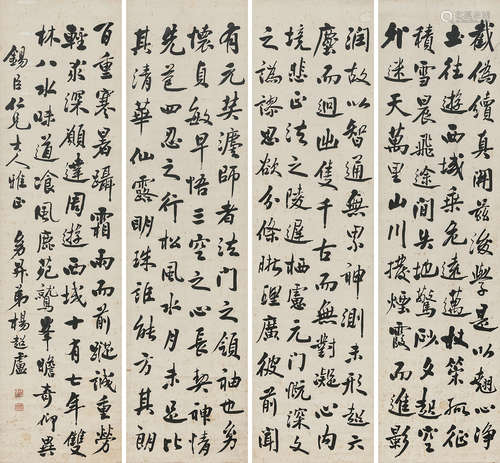 截偽續真開茲後學是以翹心淨
土往遊西域乘危遠邁杖策孤征
積雪晨飛途間失地驚砂夕起空
外迷天萬里山川撥煙霞而進影
潤故以智通無累神測未形超六
塵而迥出隻千古而無對凝心內
境悲正法之陵遲栖慮元門慨深文
之譌謬思欲分條晰理廣彼前聞
有元奘灋師者法門之領袖也幼
懷貞敏早悟三空之心長契神情
先苞四忍之行松風水月未足比
其清華仙露明珠誰能方其朗
百重寒暑躡霜雨而前蹤誠重勞
輕求深願達周遊西域十有七年雙
林八水味道飡風鹿苑鷲峯瞻奇仰異
錫臣仁兄大人雅正 弟楊